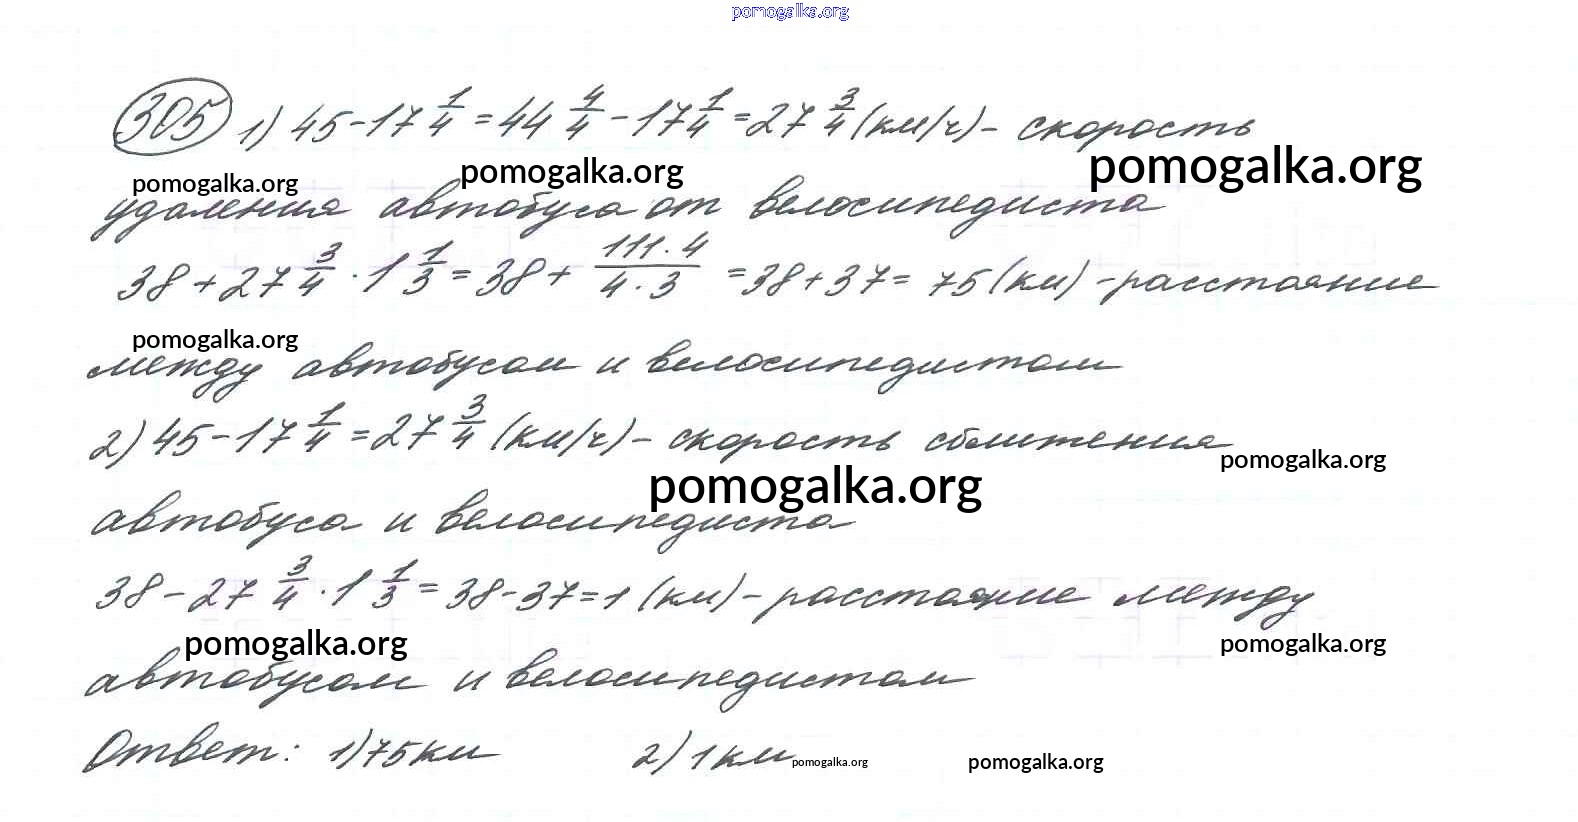 pomogalka.org
305 1) 45 - 17 1/4 = 44 4/4 - 17 1/4 = 27 3/4 (км/ч) - скорость
pomogalka.org pomogalka.org pomogalka.org
удаления автобуса от велосипедиста
38 + 27 3/4 · 1 1/3 = 38 + 111·4/4·3 = 38 + 37 = 75 (км) - расстояние
pomogalka.org
между автобусом и велосипедистом
2) 45 - 17 1/4 = 27 3/4 (км/ч) - скорость сближения
pomogalka.org
pomogalka.org
автобуса и велосипедиста
38 - 27 3/4 · 1 1/3 = 38 - 37 = 1 (км) - расстояние между
pomogalka.org pomogalka.org
автобусом и велосипедистом
Ответ: 1) 75 км 2) 1 км
pomogalka.org pomogalka.org